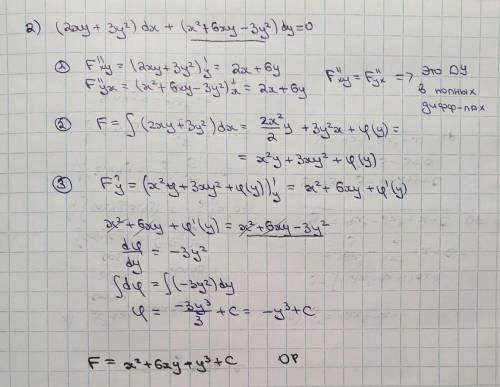 2) (2xy + 3y²) dx + (x² + 6xy - 3y²) dy = 0
① F''xy = (2xy + 3y²)'y = 2x + 6y
F''yx = (x² + 6xy - 3y²)'x = 2x + 6y
F''xy = F''yx => это ДУ
в полных
дифф-лах
② F = ∫ (2xy + 3y²) dx = 2x²/2 y + 3y²x + φ(y) =
= x²y + 3xy² + φ(y)
③ F'y = (x²y + 3xy² + φ(y))'y = x² + 6xy + φ'(y)
x² + 6xy + φ'(y) = x² + 6xy - 3y²
dφ/dy = -3y²
∫dφ = ∫(-3y²)dy
φ = -3y³/3 + C = -y³ + C
F = x² + 6xy + y³ + C ОР